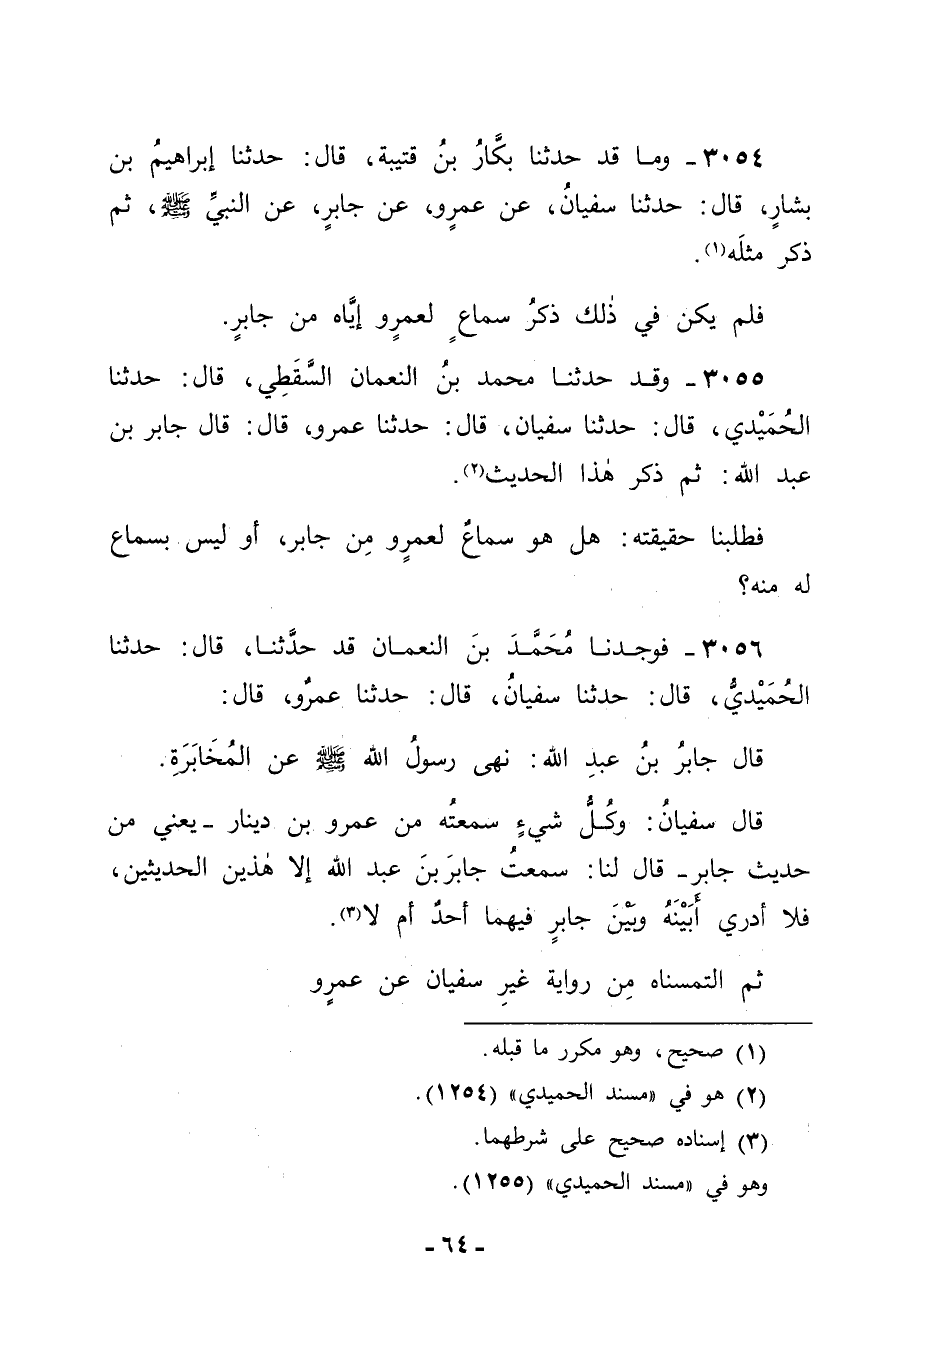 ٣٠٥٤ ـ وما قد حدثنا بكَّارُ بنُ قتيبة، قال: حدثنا إبراهيمُ بن
بشارٍ، قال: حدثنا سفيانُ، عن عمرٍو، عن جابرٍ، عن النبيِّ ﷺ، ثم
ذكر مثلَه(١).
فلم يكن في ذٰلك ذكرُ سماعٍ لعمرٍو إيَّاه من جابرٍ.
٣٠٥٥ ـ وقد حدثنا محمد بنُ النعمان السَّقَطِي، قال: حدثنا
الحُمَيْدي، قال: حدثنا سفيان، قال: حدثنا عمرو، قال: قال جابر بن
عبد الله: ثم ذكر هٰذا الحديث(٢).
فطلبنا حقيقته: هل هو سماعٌ لعمرٍو مِن جابر، أو ليس بسماع
له منه؟
٣٠٥٦ ـ فوجدنا مُحَمَّدَ بنَ النعمان قد حدَّثنا، قال: حدثنا
الحُمَيْديُّ، قال: حدثنا سفيانُ، قال: حدثنا عمرٌو، قال:
قال جابرُ بنُ عبدِ الله: نهى رسولُ الله ﷺ عن المُخَابَرَةِ.
قال سفيانُ: وكُلُّ شيءٍ سمعتُه من عمرو بن دينار ـ يعني من
حديث جابر ـ قال لنا: سمعتُ جابرَ بنَ عبد الله إلا هٰذين الحديثين،
فلا أدري أَبَيْنَهُ وبَيْنَ جابرٍ فيهما أحدٌ أم لا(٣).
ثم التمسناه مِن رواية غيرِ سفيان عن عمرٍو
(١) صحيح، وهو مكرر ما قبله.
(٢) هو في «مسند الحميدي» (١٢٥٤).
(٣) إسناده صحيح على شرطهما.
وهو في «مسند الحميدي» (١٢٥٥).
ـ ٦٤ ـ